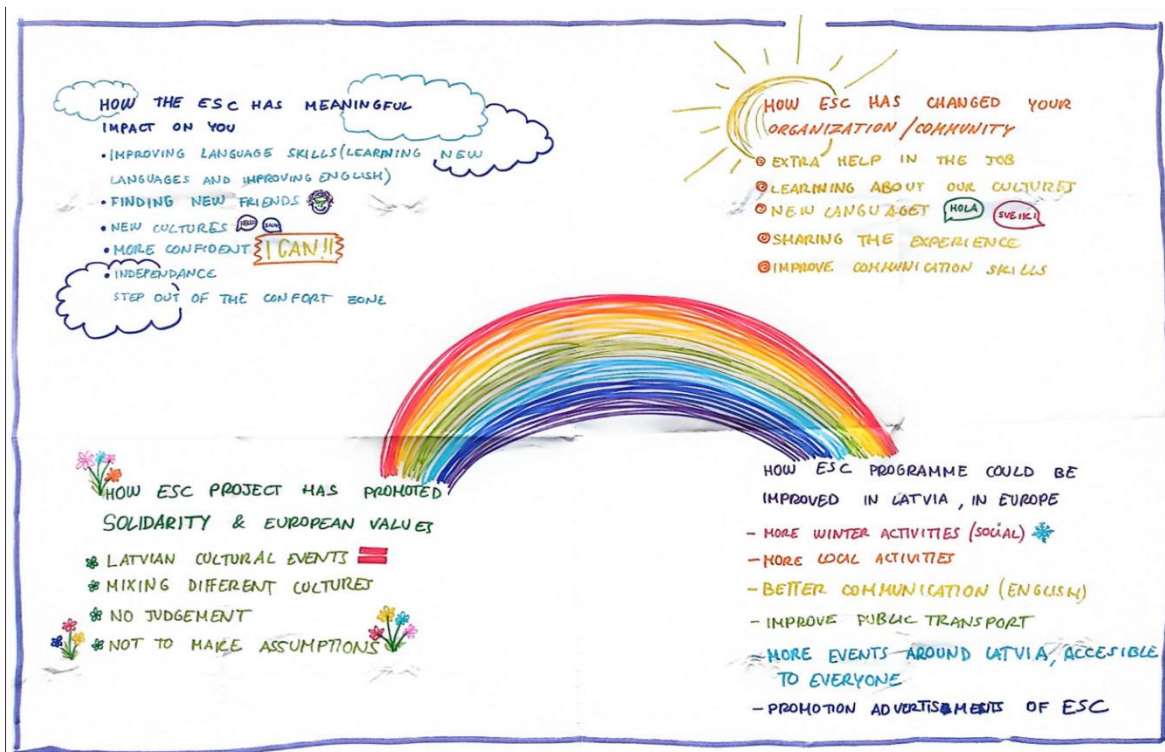 HOW THE ESC HAS MEANINGFUL
IMPACT ON YOU
• IMPROVING LANGUAGE SKILLS (LEARNING NEW
LANGUAGES AND IMPROVING ENGLISH)
• FINDING NEW FRIENDS
• NEW CULTURES
• MORE CONFIDENT I CAN!!
• INDEPENDANCE
STEP OUT OF THE CONFORT ZONE
HOW ESC HAS CHANGED YOUR
ORGANIZATION/COMMUNITY
EXTRA HELP IN THE JOB
LEARNING ABOUT OUR CULTURES
NEW LANGUAGET HOLA SVEIKI
SHARING THE EXPERIENCE
IMPROVE COMMUNICATION SKILLS
HOW ESC PROJECT HAS PROMOTED
SOLIDARITY & EUROPEAN VALUES
LATVIAN CULTURAL EVENTS
MIXING DIFFERENT CULTURES
NO JUDGEMENT
NOT TO MAKE ASSUMPTIONS
HOW ESC PROGRAMME COULD BE
IMPROVED IN LATVIA, IN EUROPE
- MORE WINTER ACTIVITIES (SOCIAL)
- MORE LOCAL ACTIVITIES
- BETTER COMMUNICATION (ENGLISH)
- IMPROVE PUBLIC TRANSPORT
- MORE EVENTS AROUND LATVIA, ACCESIBLE
TO EVERYONE
- PROMOTION ADVERTISEMENTS OF ESC